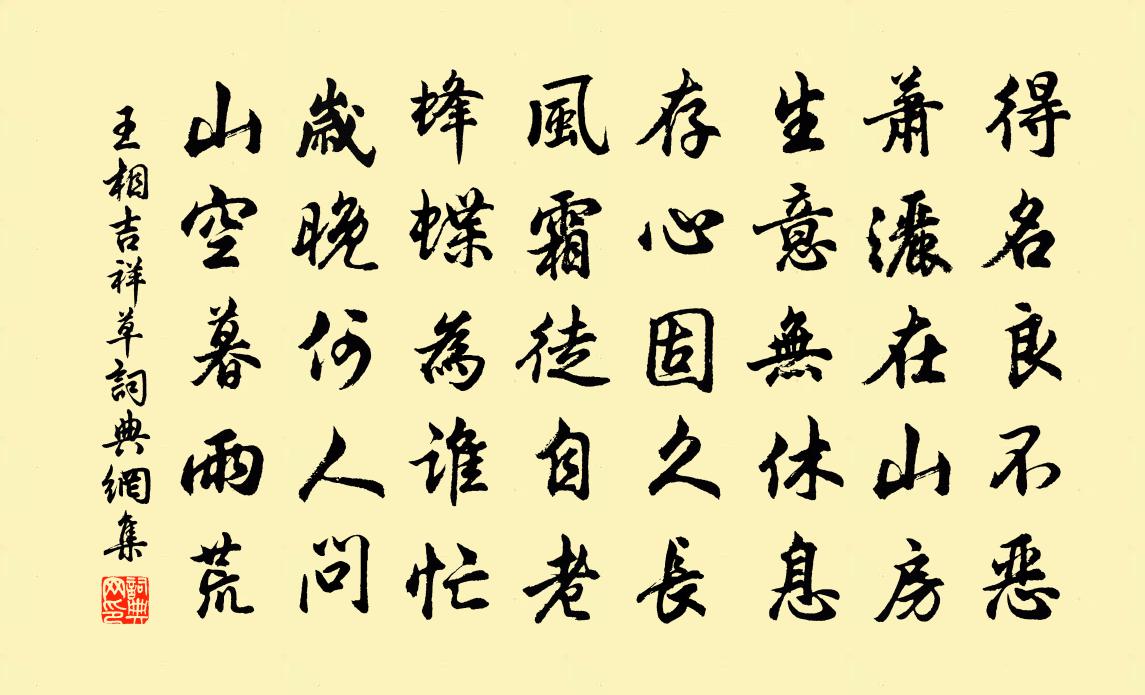 得名良不惡
蕭灑在山房
生意無休息
存心固久長
風霜徒自老
蜂蝶為誰忙
歲晚何人問
山空暮雨荒
王相吉祥草詞典網集
詞典網印